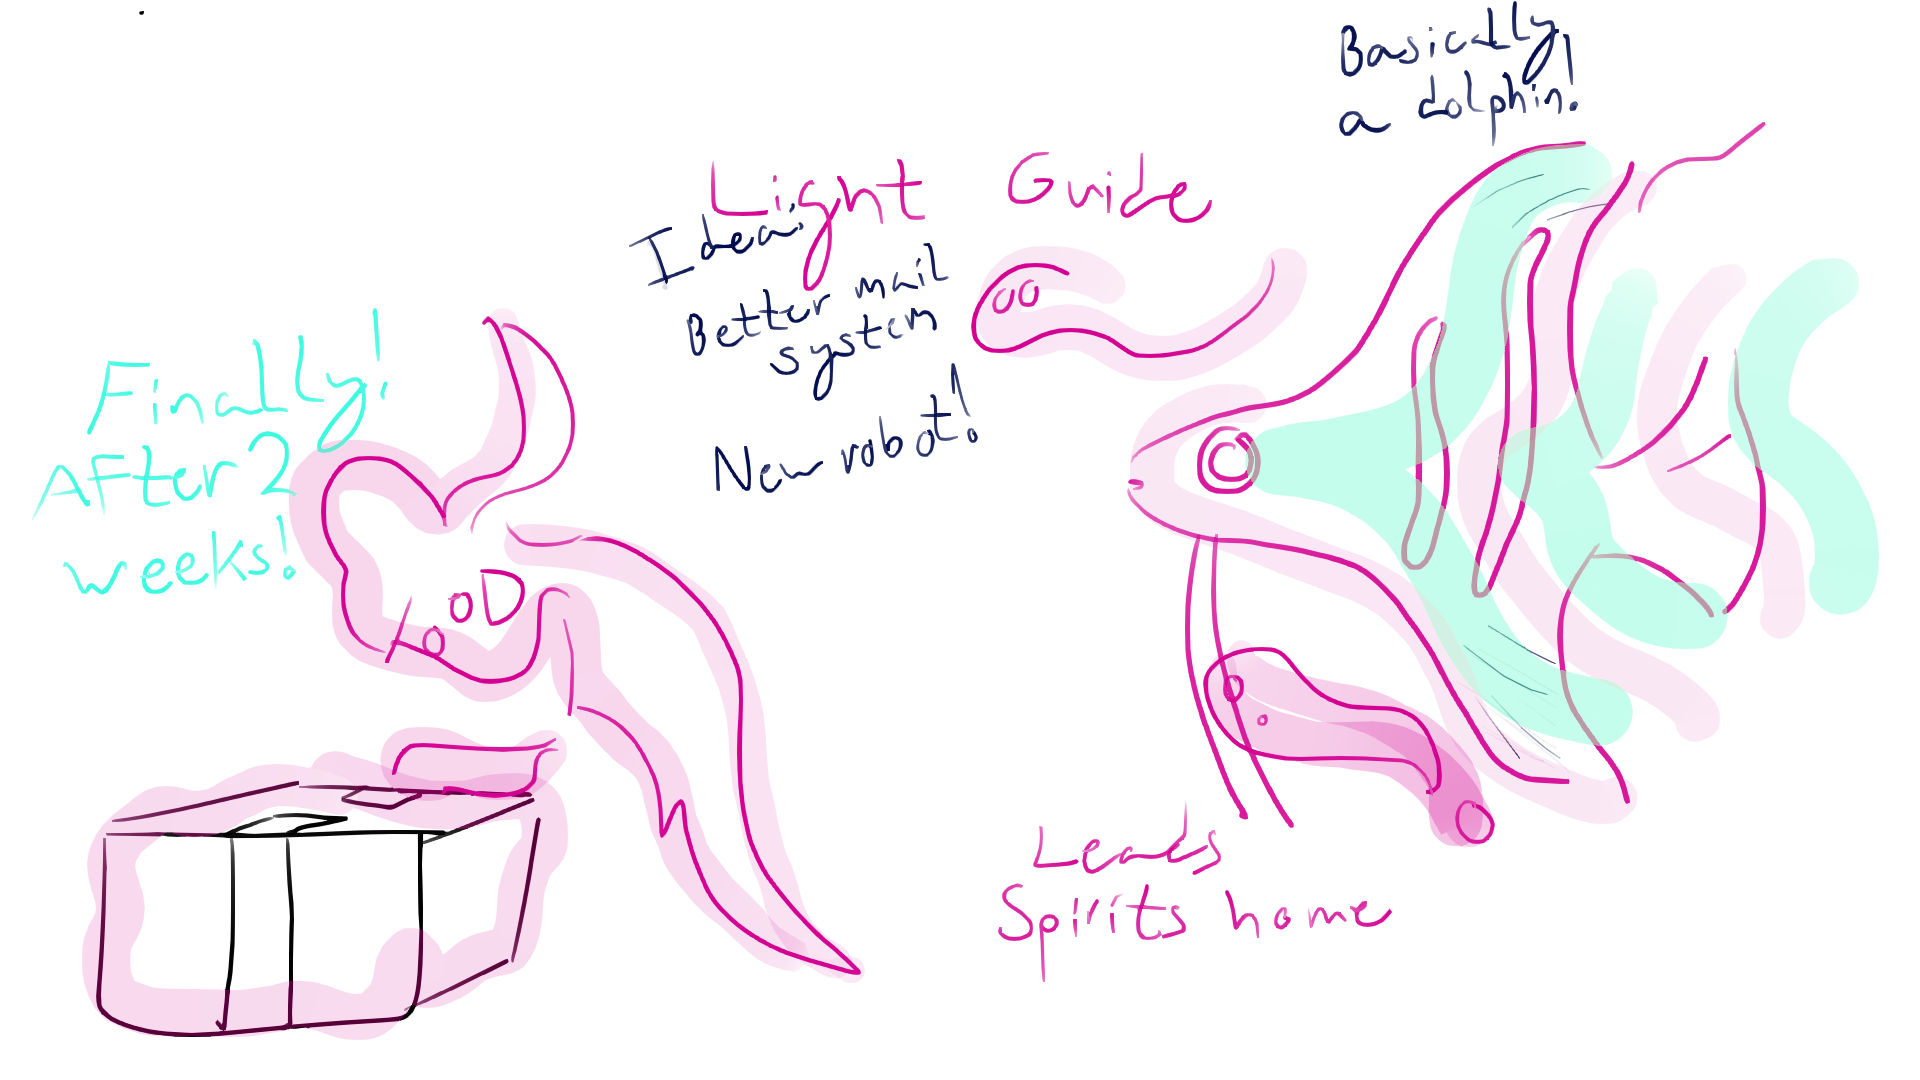 Basically,
a dolphin!
Light Guide
Idea:
Better mail
system
New robot!
Finally!
After 2
weeks!
Leads
Spirits home